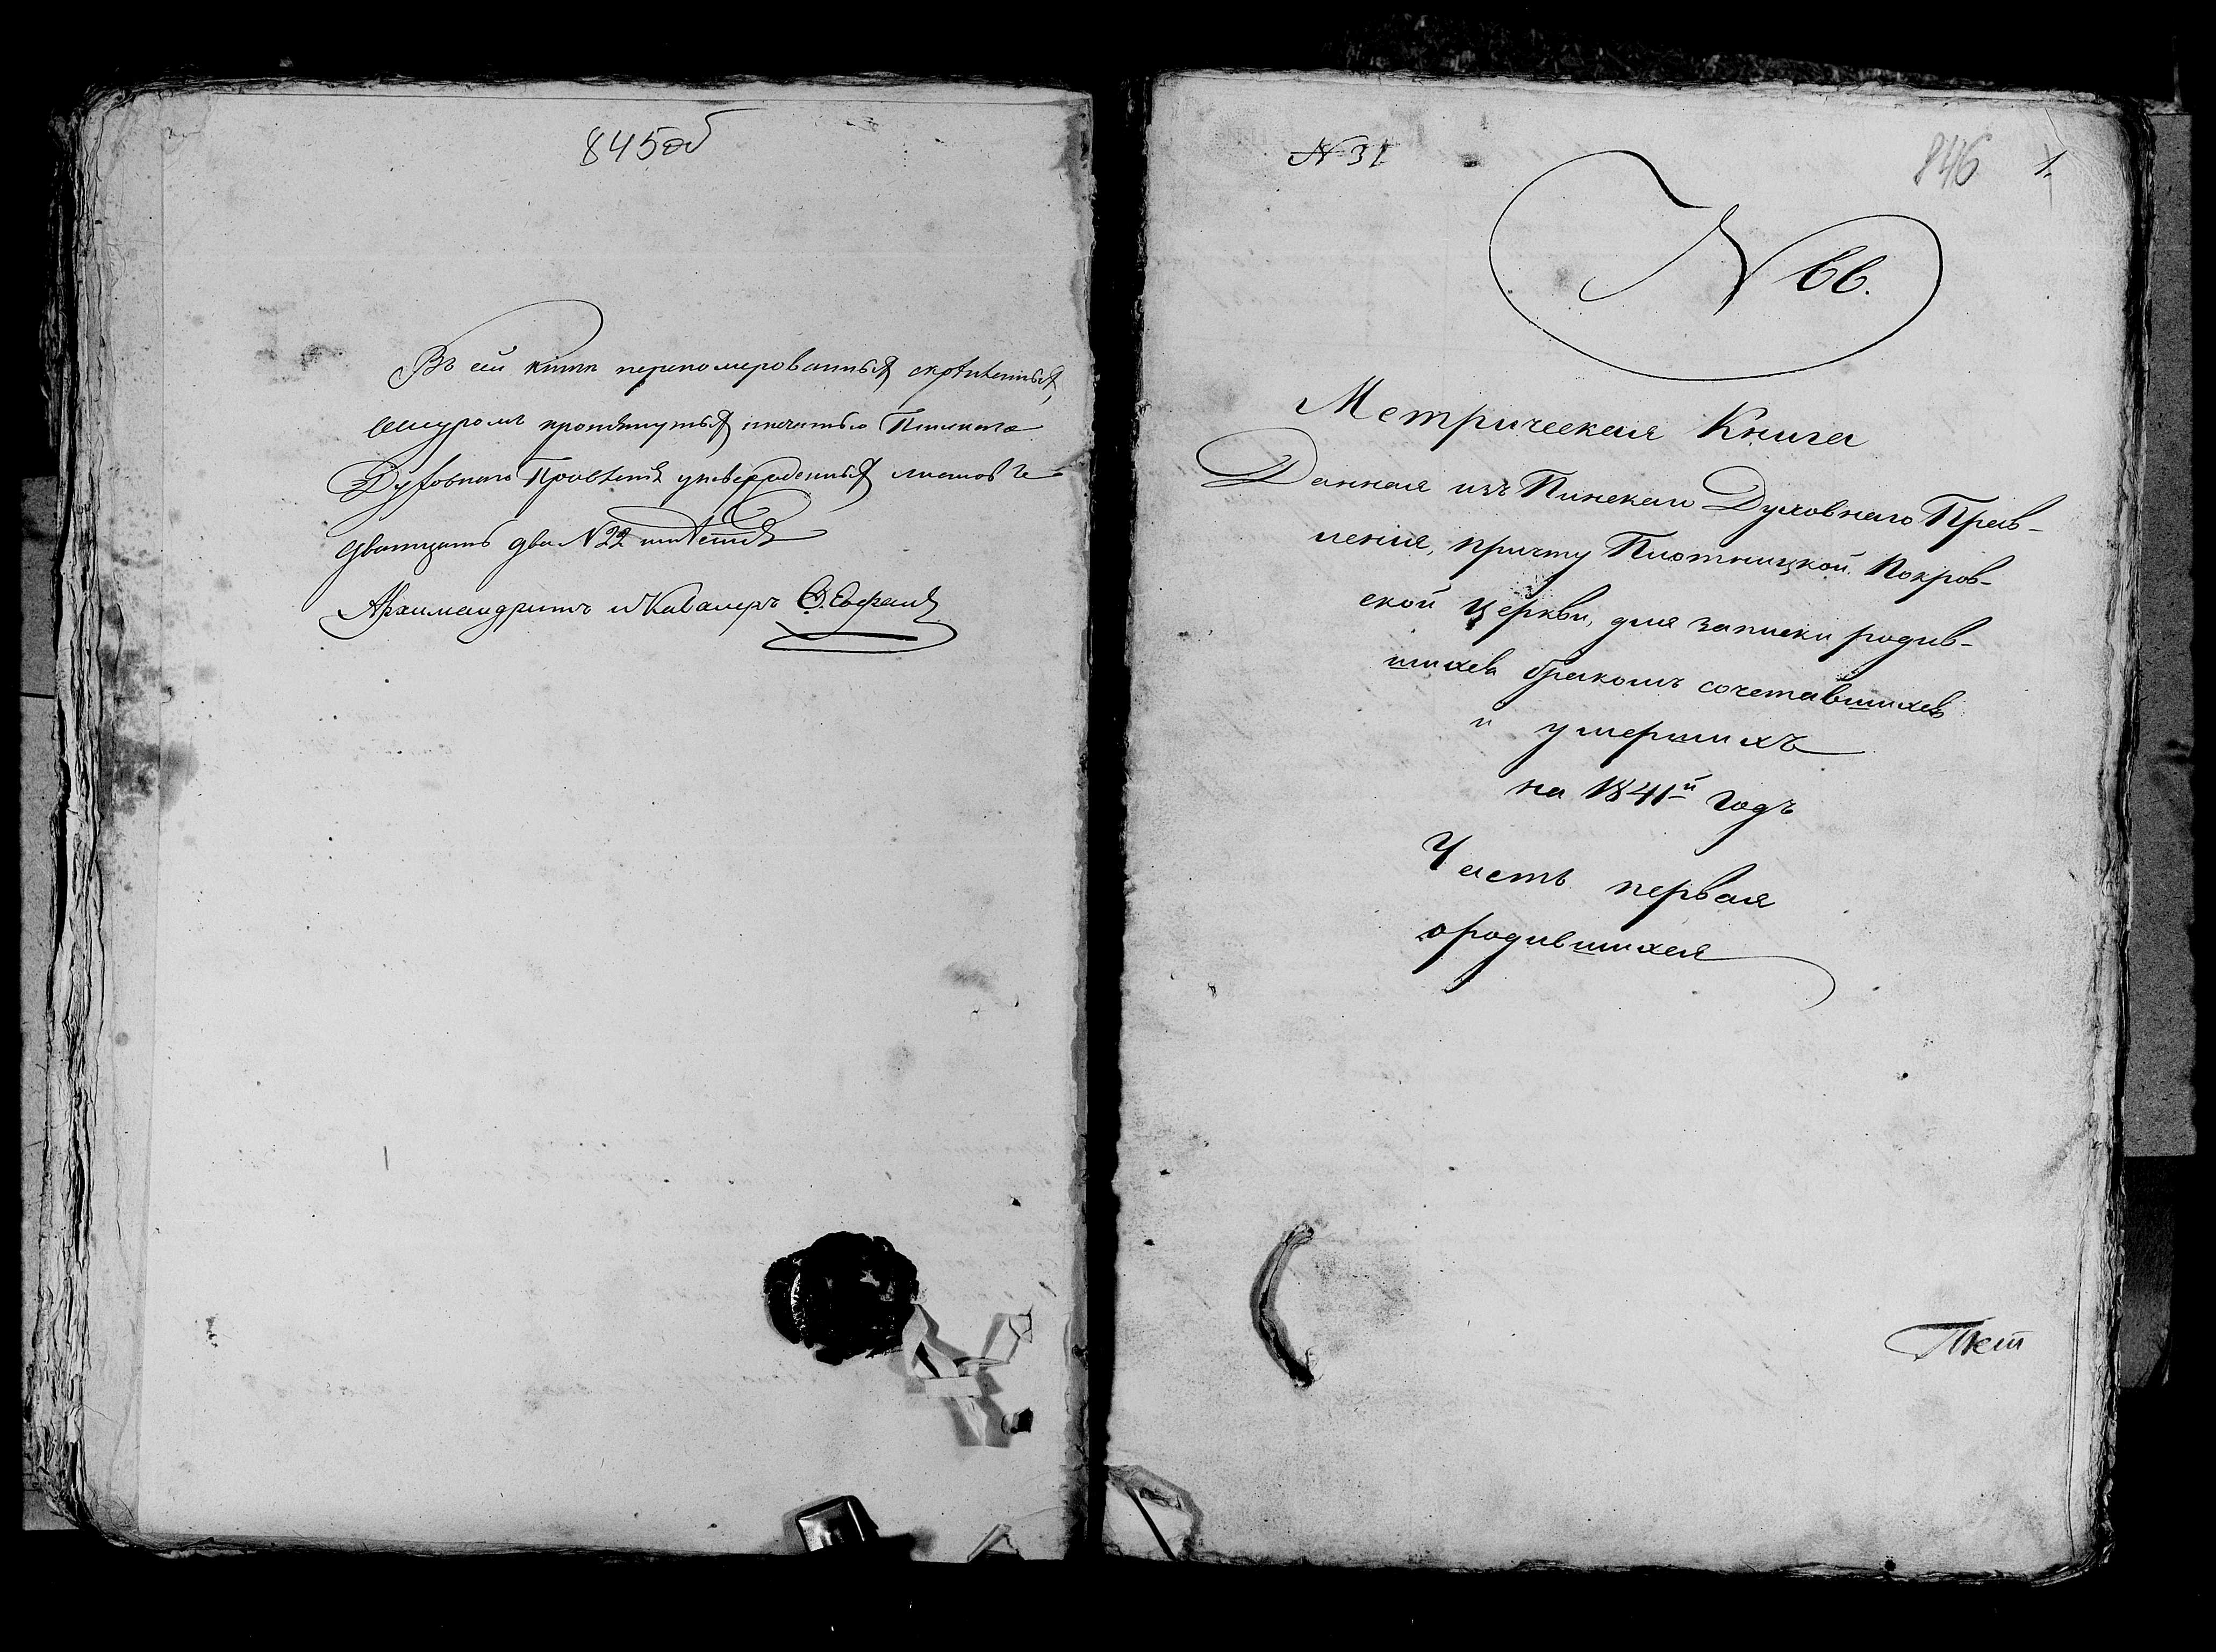 845об
Въ сей книги перенумерованныхъ скрѣпленныхъ,
шнуромъ протянутыхъ и печатью Пинскаго
Духовнаго Правленія утвержденныхъ листовъ
дватцать два №22
Архимандритъ и Кавалеръ
№ 31
846
1.
№ 66.
Метрическая Книга
Данная изъ Пинскаго Духовнаго Прав-
ленія, причту Плотницкой Покров-
ской Церкви, для записки родив-
шихсъ бракомъ сочетавшихсъ
и умершихъ
на 1841й годъ
Часть первая
о родившихся